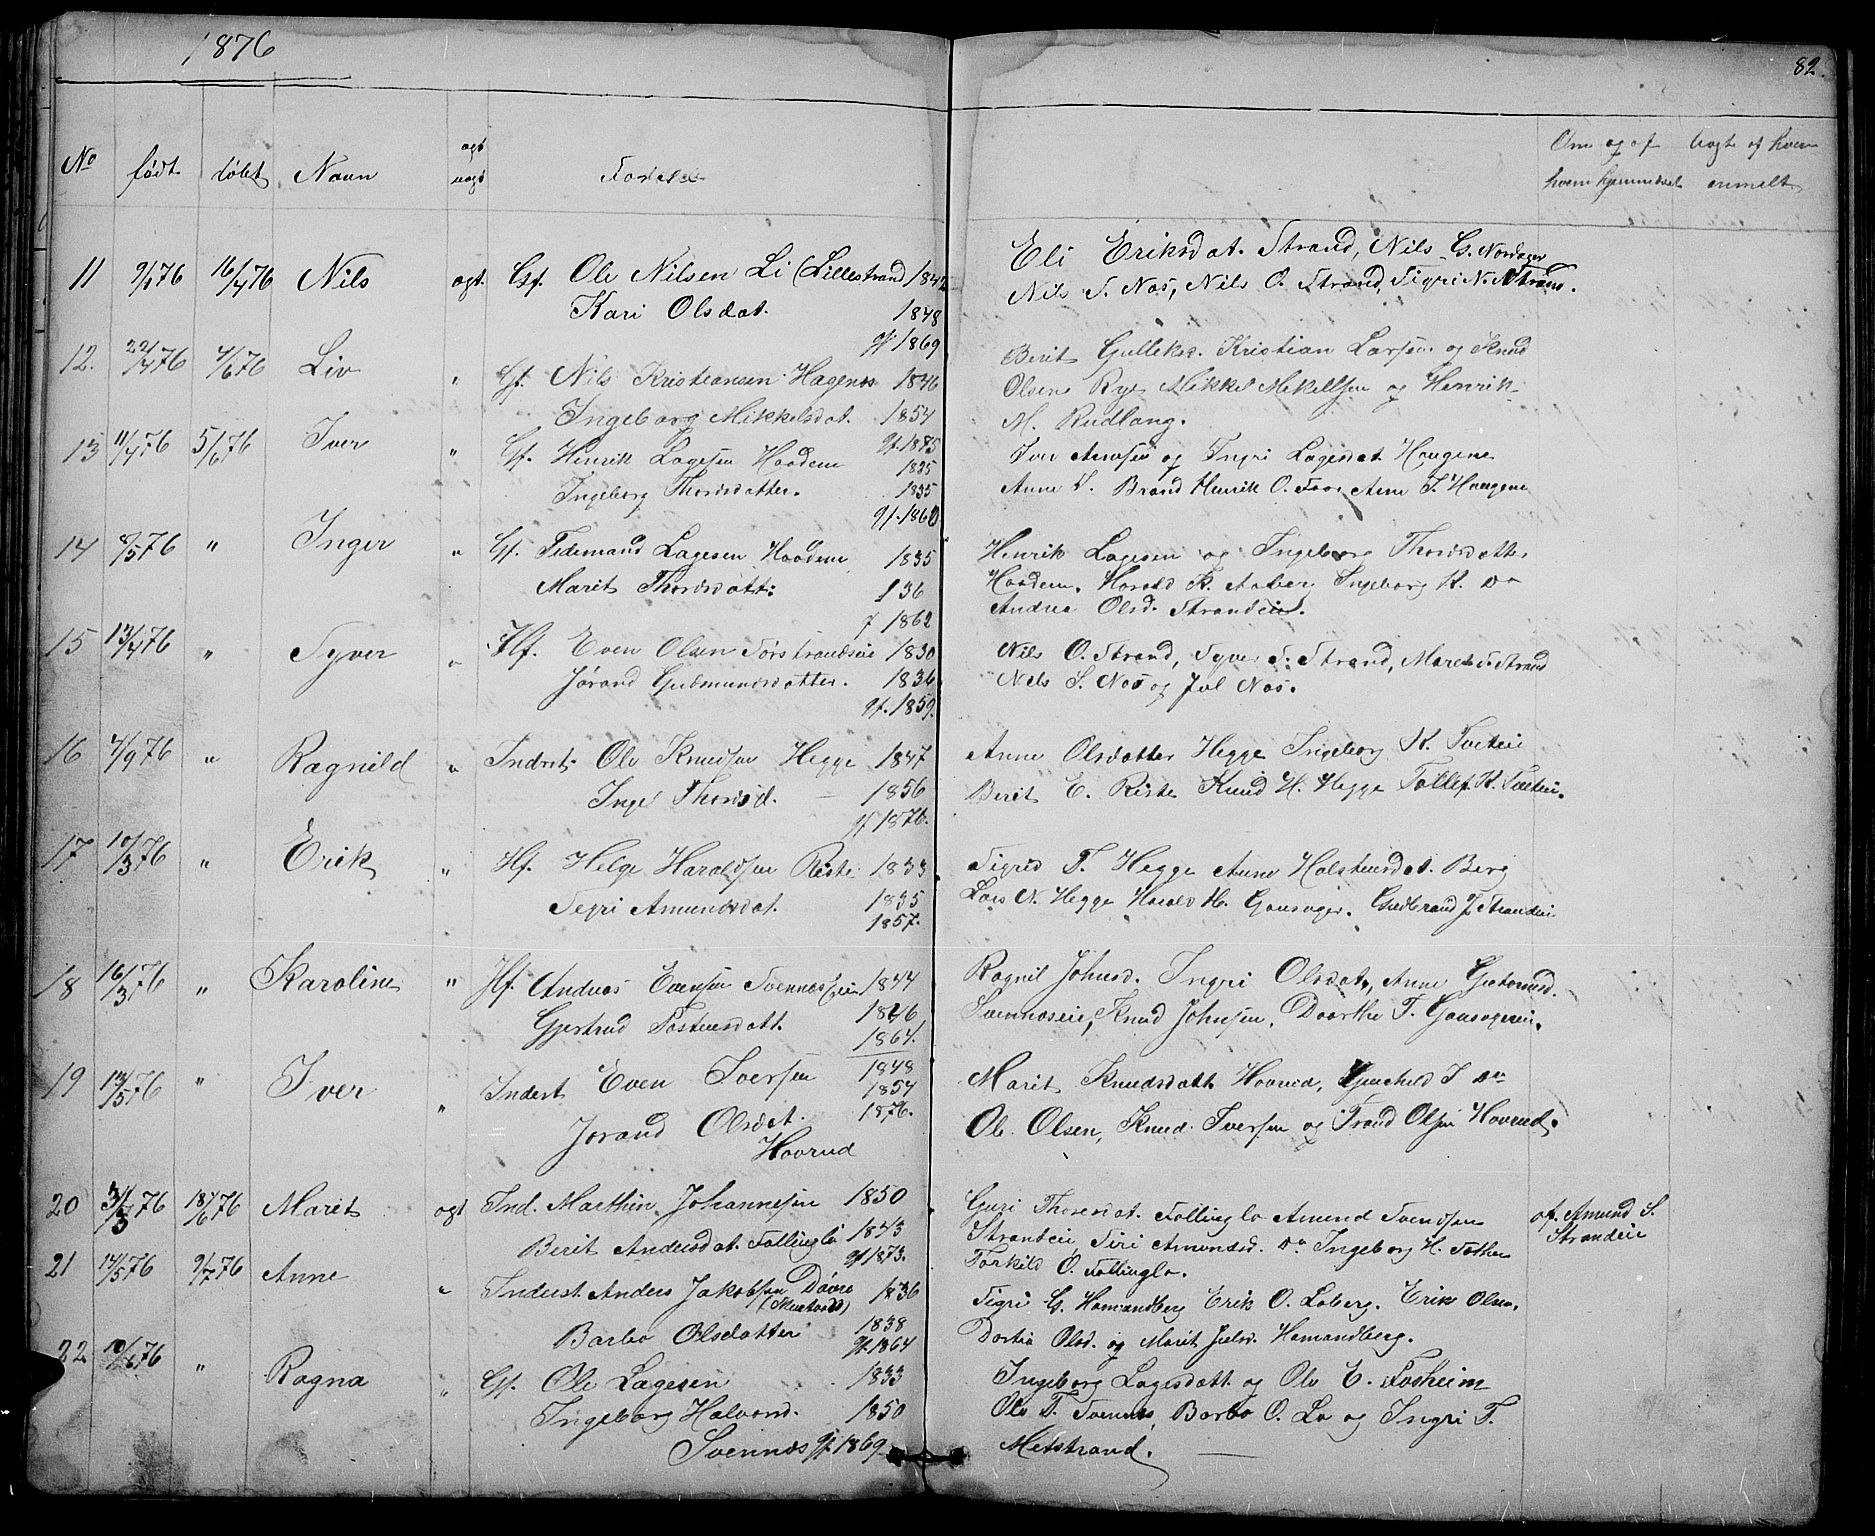 1876
82.
No født døbt Navn ægt uægt Forældre
Om og af hvem hjemmedøbt
Uægte af hvem anmelt
11 9/1 76 16/4 76 Nils ægt. Gf. Ole Nilsen Li (Lillestrand) 1842
Kari Olsdat. 1848
gf 1869
Eli Eriksdat. Strand, Nils G. Nordager
Nils S. Næs, Nils O. Strand, Sigri N. Strand.
12. 22/1 76 4/6 76 Liv " Gf. Nils Kristiansen Hagenæs 1846
Ingeborg Mikkelsdat. 1854
gf. 1875
Berit Gulleksd. Kristian Larsen og Knud
Olsen Rye Mikkel Mikelsen og Henrik
M. Rudlang.
13 11/4 76 5/6 76 Iver " Gf. Henrik Lagesen Haadem 1825
Ingeborg Thordsdatter. 1835
gf. 1860
Iver Arnesen og Ingri Lagesdat. Haugene
Anne T. Brand Henrik O. Foss Anne I. Haugene
14 8/5 76 " Inger " Gf. Tidemand Lagesen Haadem 1835
Marit Thordsdatt: 36
f 1862
Henrik Lagesen og Ingeborg Thordsdatter
Haadem. Harald K. Aaberg Ingeborg K. Do
Andrea Olsd. Strandeie.
15 13/4 76 " Syver " Hf. Even Olsen Sørstrandseie 1830
Jørand Gudmundsdatter. 1836
gf. 1859.
Nils O. Strand, Syver S. Strand, Marit S. Strand
Nils S. Næs og Jul Næs.
16 4/9 76 " Ragnild " Indrst. Ole Knudsen Hegge 1847
Inge Thorsd. 1856
gf 1876.
Anne Olsdatter Hegge Ingeborg K. Tveteie
Berit E. Riste Knud H. Hegge Tollef K. Tveteie.
17 10/3 76 " Erik " Hf. Helge Haraldsen Riste 1833
Segri Amundsdat. 1835
1857.
Sigrid T. Hegge Anne Halstensdat. Berg
Lars N. Hegge Harald H. Gausager. Gudbrand J. Strandeie
18 16/3 76 " Karoline " Hf. Andreas Evensen Svennæseie 1844
Gjertrud Tostensdatt. 1846
1867.
Ragnil Johnsd. Ingri Olsdat., Anne Gutormsd.
Svennæseie, Knud Johnsen, Doorthe T. Gausagereie.
19 13/5 76 " Iver " Inderst Even Iversen 1848
Jørand Olsdat. 1854
Hovrud 1876.
Marit Knudsdatt Hovrud, I Do
Ole Olsen, Knud Iversen og Trand Olsen Hovrud.
20 31/3 76 18/6 76 Marit ægt Ind. Mathin Johannesen 1850
Berit Andersdat. Follinglo 1843
gf 1873.
Guri Thoresdat. Follinglo Amund Svendsen
Strandeie, Siri Amundsd. Do Ingeborg H.
Torkild O. Follinglo.
af. Amund S. Strandeie
21 14/5 76 9/7 76 Anne " Inderst. Anders Jakobsen Dovre 1836
Barbo Olsdatter 1838
gf. 1864
Sigri G. Hamandberg Erik O. Loberg. Erik Olsen.
Dortea Olsd. og Marit Juelsd. Hamandberg.
22 10/6 76 " Ragna " Gf. Ole Lagesen 1833
Ingeborg Halvord. 1850
Svennæs gf. 1869
Ingeborg Lagesdatt og Ole E. Fosheim
Ole T. Svennæs, Barbo O. Lo og Ingri T.
Metstrand.